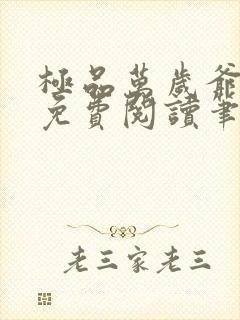 極品萬歲爺
免費閱讀筆
老三家老三